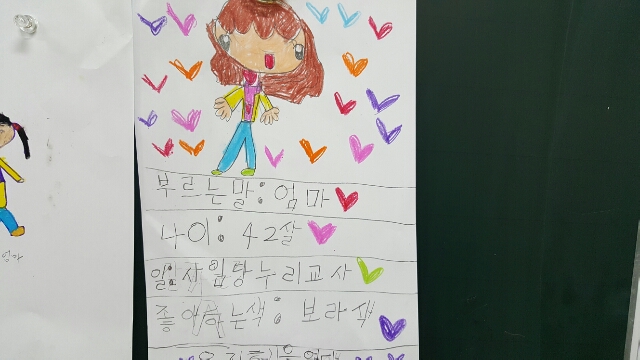 부르는말: 엄마
나이: 42살
일: 사임당누리교사
좋아하는색: 보라색
엄마